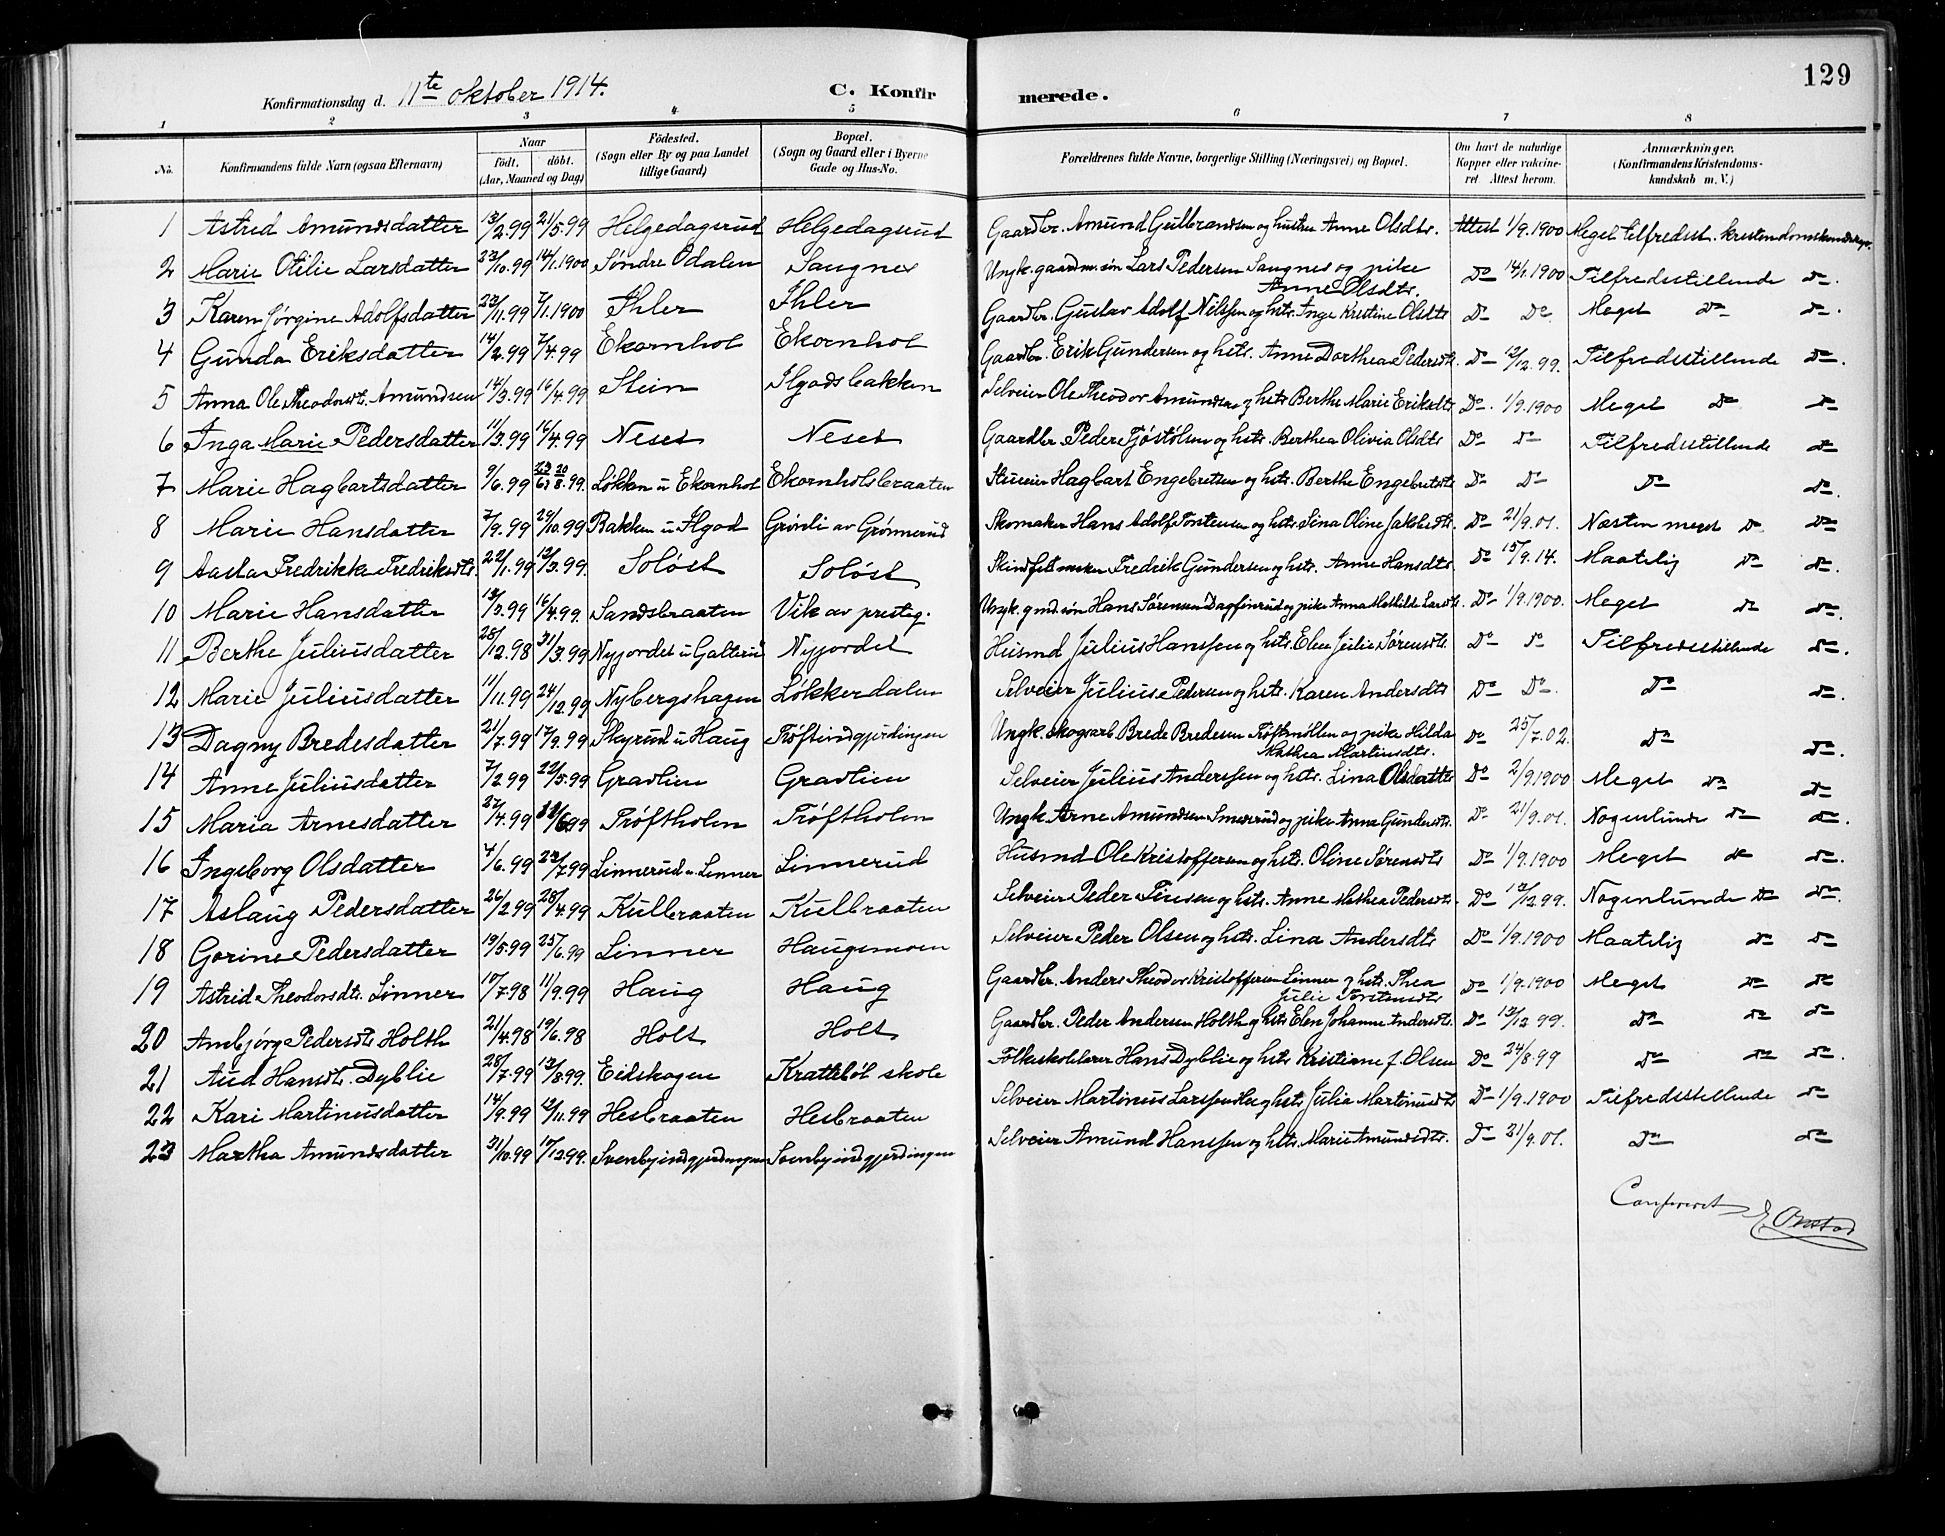 129
Konfirmationsdag d. 11te oktober 1914. C. Konfir merede.
1 2 3 4 5 6 7 8
No. Konfirmandens fulde Navn (ogsaa Efternavn) Naar födt. döbt. (Aar, Maaned og Dag) Födested. (Sogn eller By og paa Landet tillige Gaard) Bopæl. (Sogn og Gaard eller i Byerne Gade og Hus-No. Forældrenes fulde Navne, borgerlige Stilling (Næringsvei) og Bopæl. Om havt de naturlige Kopper eller vakcineret. Attest herom. Anmærkninger. (Konfirmandens Kristendomskundskab m. V.)
1 Astrid Amundsdatter 13/2.99 21/5.99 Helgedagsrud Helgedagsrud Gaardbr. Amund Gulbrandsen og hustru Anne Olsdtr. Attest 1/9.1900 Meget tilfredsst. kristendomskundskap.
2 Marie Otilie Larsdatter 23/10.99 14/1.1900 Søndre Odalen Saugnes Ungk. gaardm. søn Lars Pedersen Saugnes og pike Anne Olsdtr. Do 14/1 1900 Tilfredsstillende do.
3 Karen Jørgine Adolfsdatter 22/11.99 7/1.1900 Ihler Ihler Gaardbr. Gustav Adolf Nilssen og hstr. Inge Kristine Olsdtr Do Do Meget do do.
4 Gunda Eriksdatter 14/2.99 7/4.99 Ekornhol Ekornhol Gaardbr. Erik Gundersen og hstr. Anne Dorthea Pedersdtr. Do 12/12.99. Tilfredsstillende do.
5 Anna Ole Theodorsdtr. Amundsen 14/3.99 16/4.99 Stein Ilgodsbakken Selveier Ole Theodor Amundsen og hstr. Berthe Marie Eriksdtr Do. 1/9.1900 Meget do do
6 Inga Marie Pedersdatter 11/3.99 16/4.99 Neset Neset Gaardbr. Peder Tjøstølsen og hstr. Berthea Olivia Olsdtr Do do Tilfredsstillende do
7 Marie Hagbartsdatter 9/6.99 23/6 20/8.99. Løkken u Ekornhol Ekornholsbraaten Hagbart Engebretsen og hstr. Berthe Engebretsdtr Do Do Do do.
8 Marie Hansdatter 7/9.99 29/10.99 Bakken u Ilgod Grønli av Grønnerud Skomaker Hans Adolf Torstensen og hstr. Lina Oline Jakobsdtr. Do 21/9.01. Næsten meget do. do
9 Aasta Fredrikke Fredriksdtr. 22/1.99 12/3.99. Soløst Soløst Fredrik Gundersen og hstr. Anne Hansdtr do 15/9.14. Maatelig do do.
10 Marie Hansdatter 13/3.99 16/4.99. Sandsbraaten Vik av presteg. Ungk. gmd. søn Hans Sørensen Dagfinrud og pike Anna Mathilde Larsdtr. Do 1/9.1900. Meget do do.
11 Berthe Juliusdatter 28/12.98 31/3.99 Nyjordet u Galterud Nyjordet Husmd Julius Hanssen og hstr. Elen Julie Sørensdtr. Do do Tilfredsstillende do.
12 Marie Juliusdatter 11/11.99 24/12.99 Nybergshagen Løkkerdalen Selveier Julius Pedersen og hstr. Karen Andersdtr Do Do. Do do.
13 Dagny Bredesdatter 21/7.99 17/9.99 Skyrud u Haug Trøftindgjerdingen Ungk. skogsarb Brede Bredesen Trøftmøllen og pike Hilda Mathea Martinsdtr. Do 25/7.02. Do do.
14 Anne Juliusdatter 7/2.99 22/5.99 Gravlien Gravlien Selveier Julius Anderssen og hstr. Lina Olsdatter Do 2/9.1900 Meget do do
15 Maria Arnesdatter 27/4.99 11/6.99 Trøftholen Trøftholen Ungk. Arne Amundsen Smærud og pike Anna Gundersdtr. Do 21/9.01. Nogenlunde do do.
16 Ingeborg Olsdatter 4/6.99 23/7.99 Linnerud u. Linner Linnerud Husmd Ole Kristoffersen og hstr. Oline Sørensdtr Do 1/9.1900 Meget do do.
17 Aslaug Pedersdatter 26/2.99 28/4.99 Kulbraaten Kulbraaten Selveier Peder og hstr. Anne Mathea Pedersdtr. Do 12/12.99. Nogenlunde do do.
18 Gorine Pedersdatter 19/5.99 25/6.99 Linner Haugsmoen Selveier Peder Olsen og hstr. Lina Andersdtr Do 1/9.1900 Maatelig do do
19 Astrid Theodorsdtr. Linner 10/7.98 11/9.99 Haug Haug Gaardbr. Anders Theodor Kristoffersen Linner og hstr. Thea Julie Torstensdtr Do 1/9.1900 Meget do do
20 Ambjørg Pedersdtr Holth 21/4.98 19/6.98 Holt Holt Gaardbr. Peder Andersen Holth og hstr Elen Johanne Andersdtr. Do 12/12 99. Do do do
21 Aud Hansdtr. Dyblie 28/7.99 13/8.99. Eidskogen Kratteböl skole Folkeskolelærer Hans Dyblie og hstr Kristiane f. Olsen Do 24/8.99 Do do do.
22 Kari Martinusdatter 14/9.99 12/11.99 Hesbraaten Hesbraaten Selveier Martinus Larssen og hstr. Julia Martinusdtr Do 1/9.1900 Tilfredsstillende do
23 Martha Amundsdatter 31/10.99 17/12.99. Svenbyindgjerdingen Svenbyindgjerdingen Selveier Amund Hanssen og hstr. Marie Amundsdtr. Do 21/9.01. Do do
Confereret E Onstad